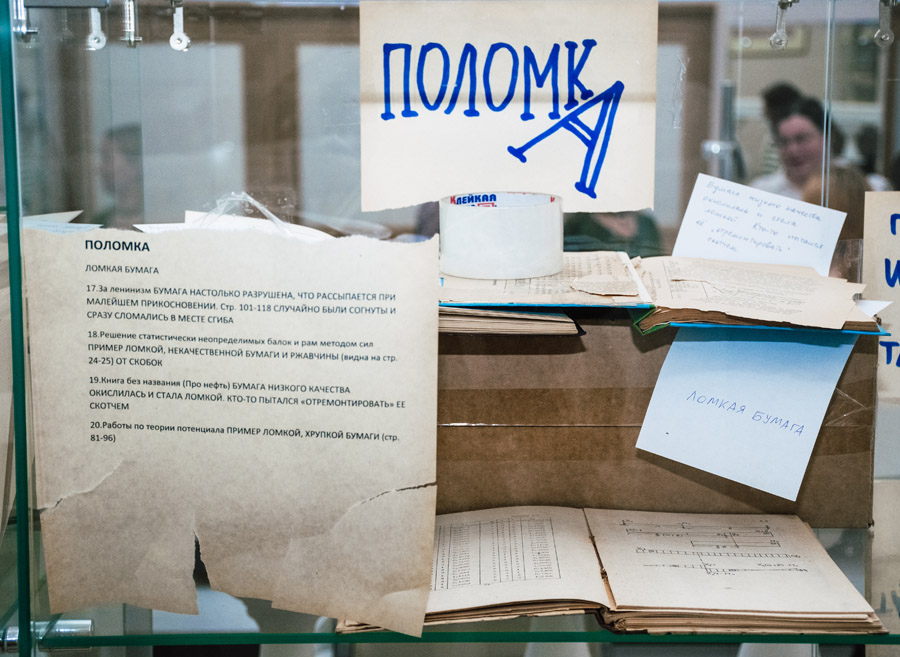 ПОЛОМКА
КЛЕЙКАЯ
Бумага низкого качества
окислилась и стала
ломкой. Кто-то пытался
её "отремонтировать"
скотчем
ПОЛОМКА
ЛОМКАЯ БУМАГА
17.За ленинизм БУМАГА НАСТОЛЬКО РАЗРУШЕНА, ЧТО РАССЫПАЕТСЯ ПРИ
МАЛЕЙШЕМ ПРИКОСНОВЕНИИ. Стр. 101-118 СЛУЧАЙНО БЫЛИ СОГНУТЫ И
СРАЗУ СЛОМАЛИСЬ В МЕСТЕ СГИБА
18.Решение статистически неопределимых балок и рам методом сил
ПРИМЕР ЛОМКОЙ, НЕКАЧЕСТВЕННОЙ БУМАГИ И РЖАВЧИНЫ (видна на стр.
24-25) ОТ СКОБОК
19.Книга без названия (Про нефть) БУМАГА НИЗКОГО КАЧЕСТВА
ОКИСЛИЛАСЬ И СТАЛА ЛОМКОЙ. КТО-ТО ПЫТАЛСЯ «ОТРЕМОНТИРОВАТЬ» ЕЕ
СКОТЧЕМ
20.Работы по теории потенциала ПРИМЕР ЛОМКОЙ, ХРУПКОЙ БУМАГИ (стр.
81-96)
ЛОМКАЯ БУМАГА